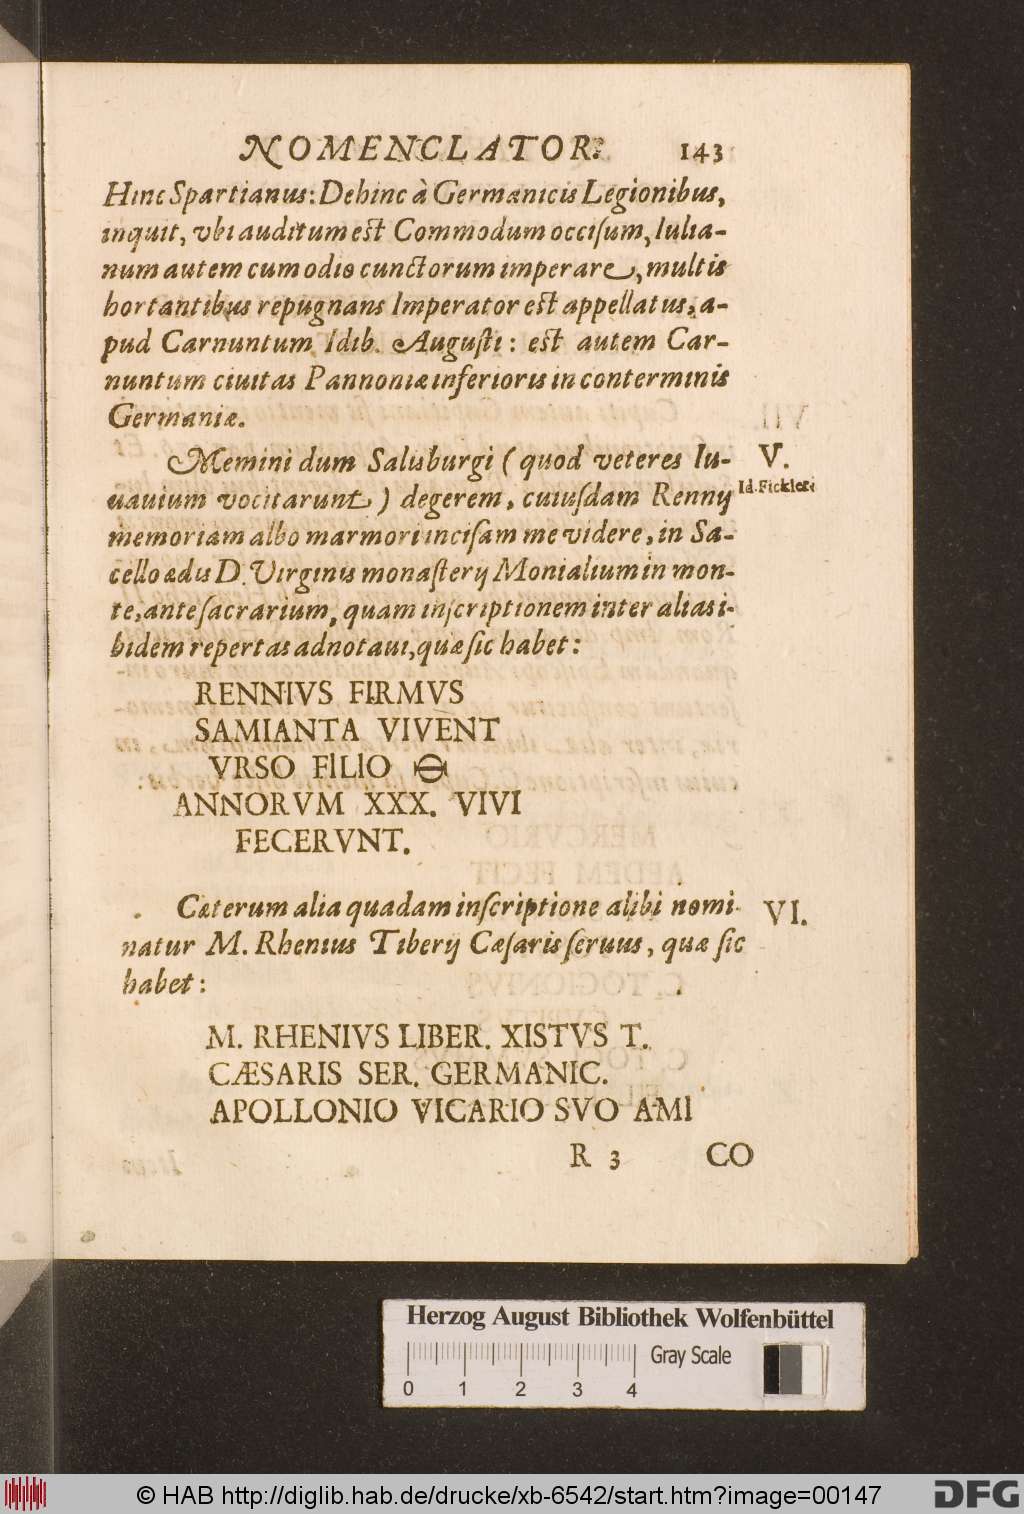 NOMENCLATOR. 143
Hinc Spartianus: Dehinc à Germanicis Legionibus,
inquit, vbi auditum est Commodum occisum, Iulia-
num autem cum odio cunctorum imperare, multis
hortantibus repugnans Imperator est appellatus, a-
pud Carnuntum Idib. Augusti: est autem Car-
nuntum ciuitas Pannoniæ inferioris in conterminis
Germaniæ.
Memini dum Salisburgi (quod veteres Iu- V.
uauium vocitarunt) degerem, cuiusdam Rennij Id. Fickleri
memoriam albo marmori incisam me videre, in Sa-
cello ædis D. Virginis monasterij Monialium in mon-
te, ante sacrarium, quam inscriptionem inter alias i-
bidem repertas adnotaui, quæ sic habet:
RENNIVS FIRMVS
SAMIANTA VIVENT
VRSO FILIO Ꝋ
ANNORVM XXX. VIVI
FECERVNT.
Cæterum alia quadam inscriptione alibi nomi- VI.
natur M. Rhenius Tiberij Cæsaris seruus, quæ sic
habet:
M. RHENIVS LIBER. XISTVS T.
CÆSARIS SER. GERMANIC.
APOLLONIO VICARIO SVO AMI
R 3 CO
Herzog August Bibliothek Wolfenbüttel
Gray Scale
0 1 2 3 4
© HAB http://diglib.hab.de/drucke/xb-6542/start.htm?image=00147
DFG